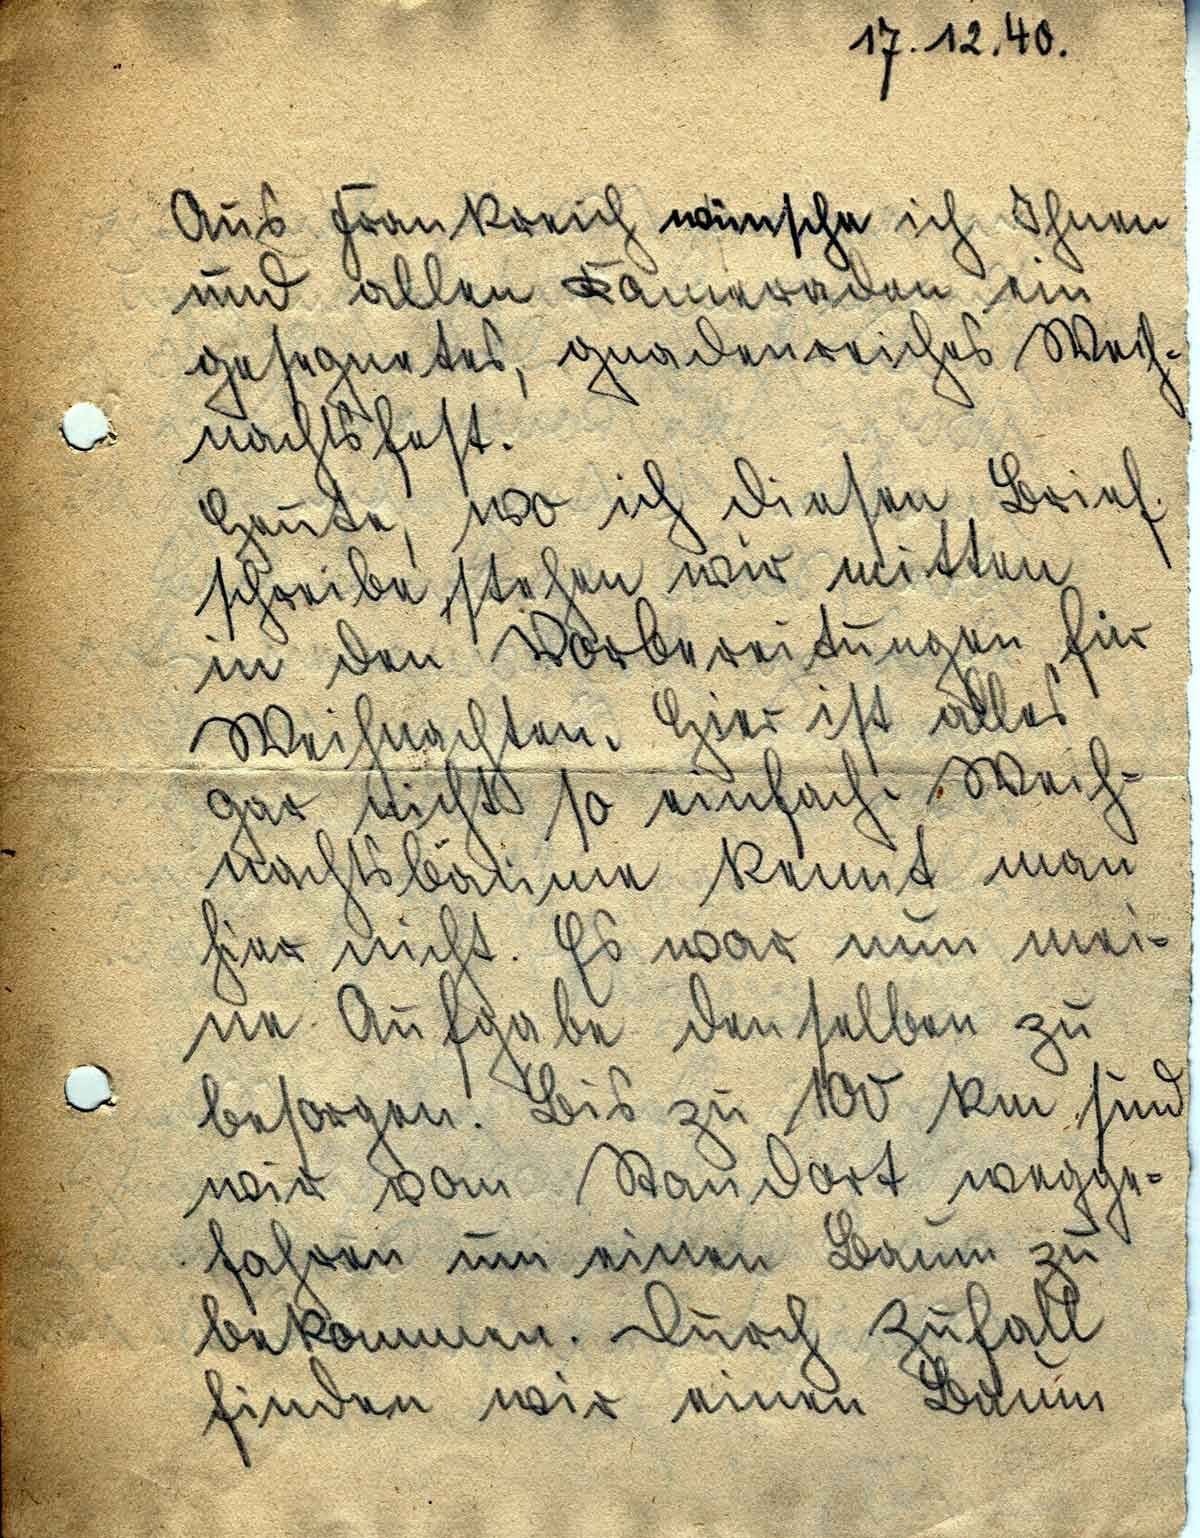 17.12.40.
Aus Frankreich wünsche ich Ihnen
und allen Kameraden ein
gesegnetes, gnadenreiches Weih-
nachtsfest.
Heute, wo ich diesen Brief
schreibe, stehen wir mitten
in den Vorbereitungen für
Weihnachten. Hier ist alles
gar nicht so einfach. Weih-
nachtsbäume kennt man
hier nicht. Es war nun mei-
ne Aufgabe denselben zu
besorgen. Bis zu 100 km sind
wir vom Standort wegge-
fahren um einen Baum zu
bekommen. Durch Zufall
finden wir einen Baum